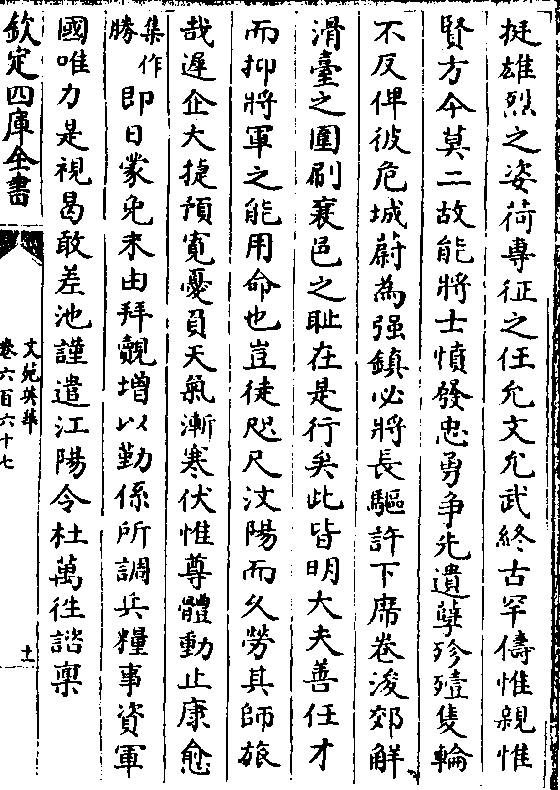 挺雄烈之姿荷專征之任允文允武終古罕儔惟親惟
賢方今莫二故能將士憤發忠勇争先遺孽殄殪隻輪
不反俾彼危城蔚為强鎮必將長驅許下席卷浚郊解
滑臺之圍刷襄邑之恥在是行矣此皆明大夫善任才
而抑將軍之能用命也豈徒咫尺汶陽而久勞其師旅
哉遲企大捷預寬憂負天氣漸寒伏惟尊體動止康愈
集作
勝
即日蒙免未由拜覿增以勤係所調兵糧事資軍
國唯力是視曷敢差池謹遣江陽令杜萬徃諮禀
欽定四庫全書
文苑英華
卷六百六十七
十